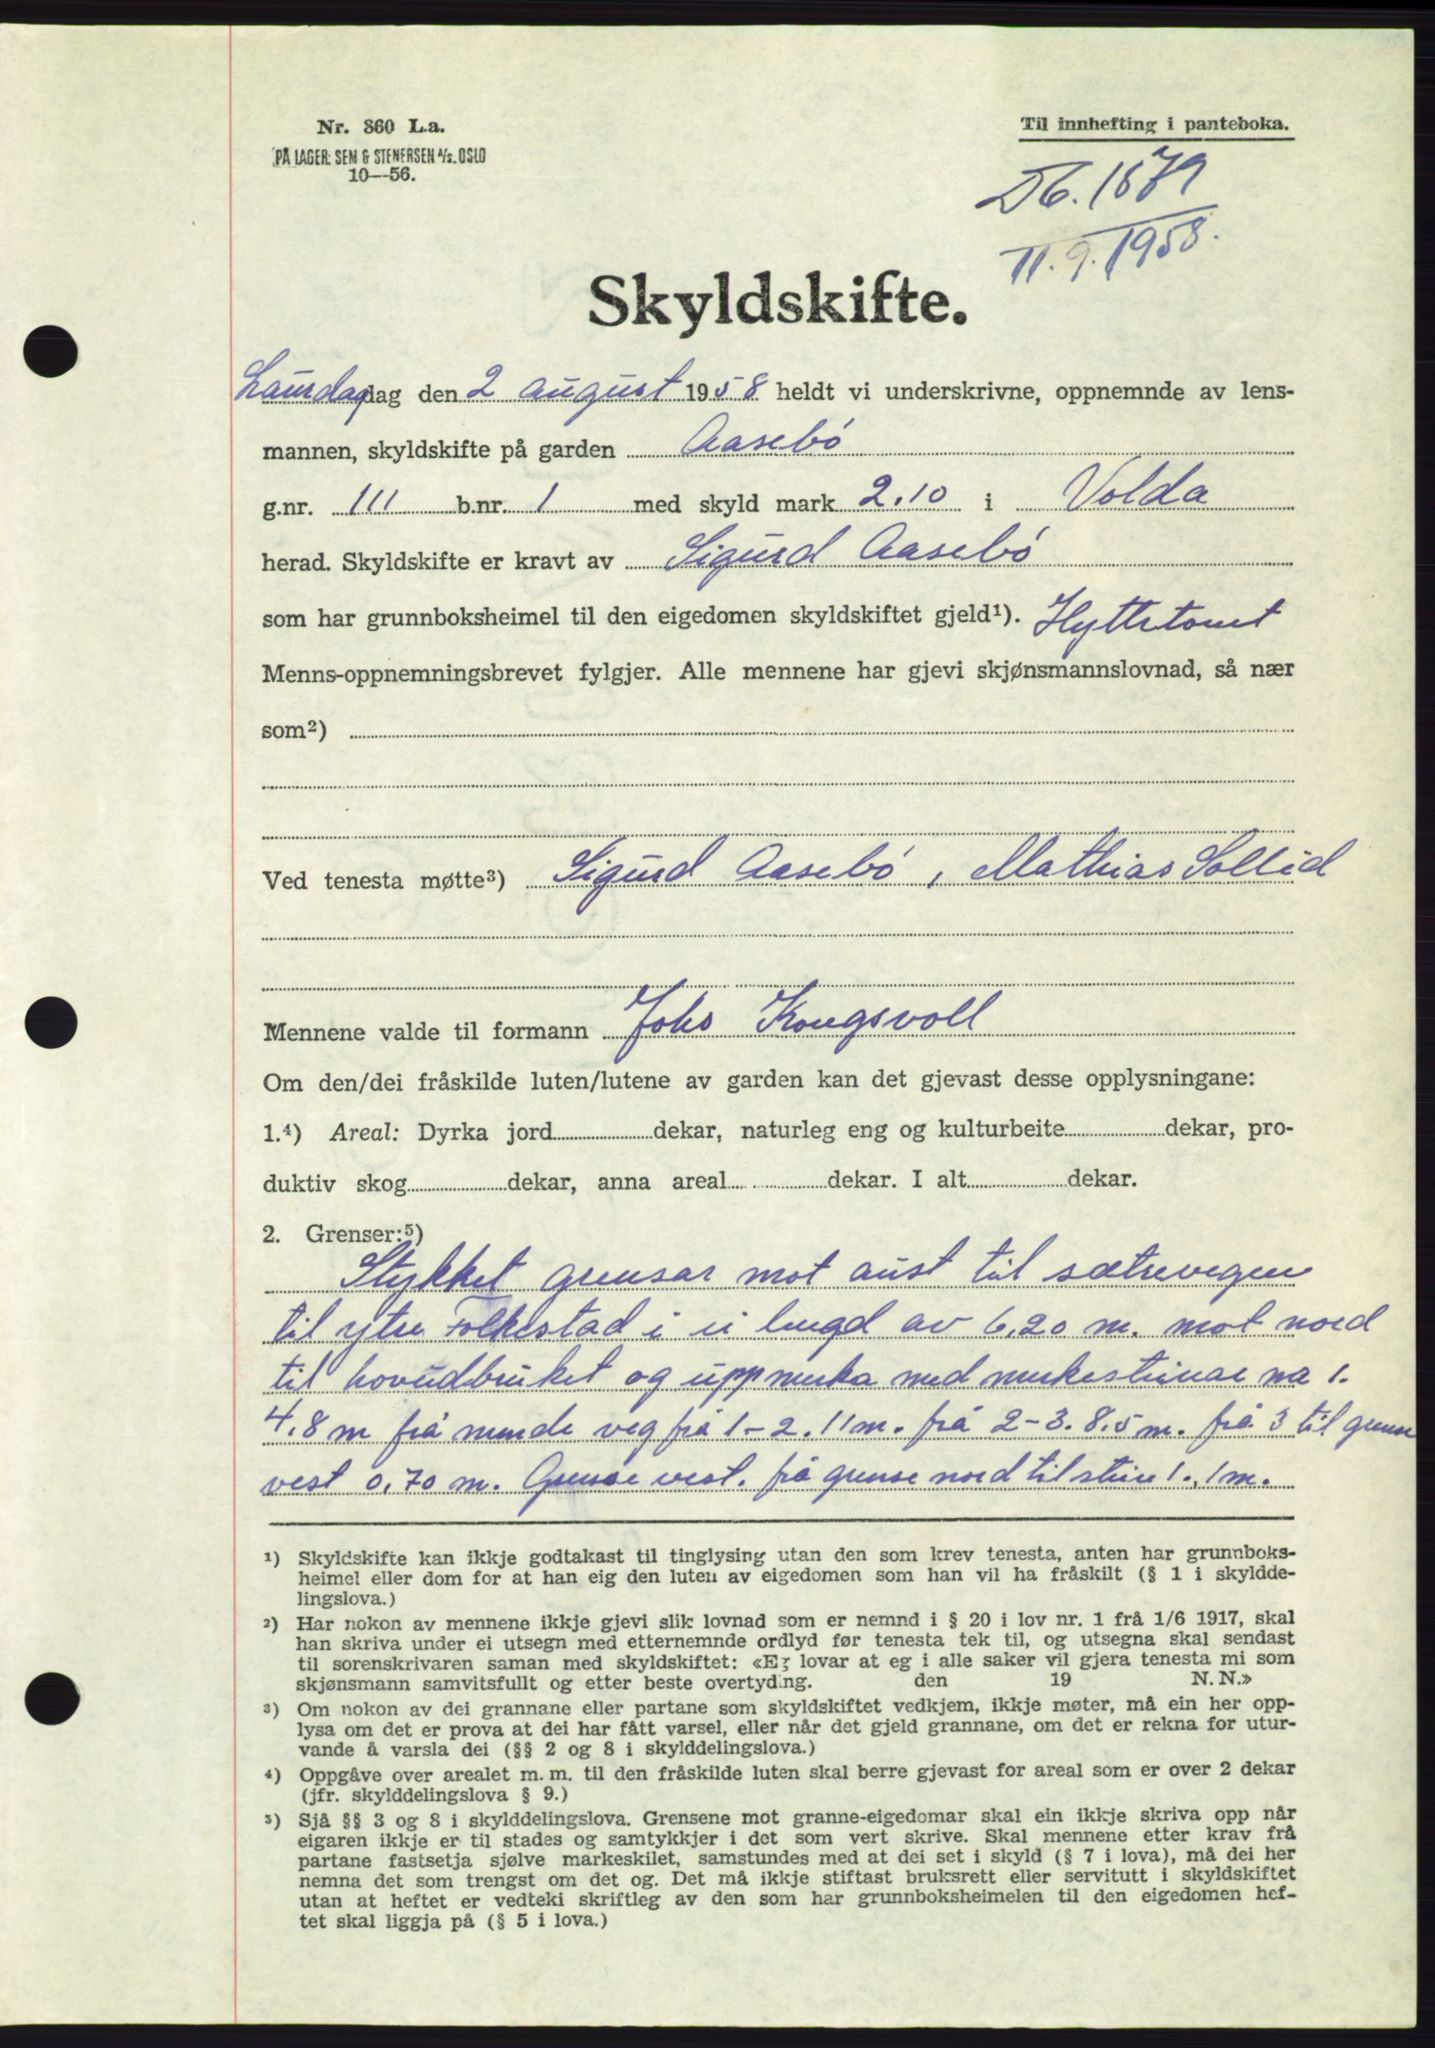 Nr. 860 L.a.
PÅ LAGER: SEM & STENERSEN A/S. OSLO
10—56.
Til innhefting i panteboka.
Db. 1879
11.9.1958.
Skyldskifte.
Laurdag dag den 2 august 1958 heldt vi underskrivne, oppnemnde av lens-
mannen, skyldskifte på garden Aasebó
g.nr. 111 b.nr. 1 med skyld mark 2.10 i Volda
herad. Skyldskifte er kravt av Sigurd Aasebó
som har grunnboksheimel til den eigedomen skyldskiftet gjeld¹). Hyttetomt
Menns-oppnemningsbrevet fylgjer. Alle mennene har gjevi skjønsmannslovnad, så nær
som²)
Ved tenesta møtte³) Sigurd Aasebó, Mathias Sollid
Mennene valde til formann Johs Kongsvoll
Om den/dei fråskilde luten/lutene av garden kan det gjevast desse opplysningane:
1.⁴) Areal: Dyrka jord dekar, naturleg eng og kulturbeite dekar, pro-
duktiv skog dekar, anna areal dekar. I alt dekar.
2. Grenser:⁵)
Stykket grensar mot aust til sætrevegen
til ytre Folkestad i ei lengd av 6,20 m. mot nord
til hovudbruket og uppmerka med merkesteinar na 1.
4,8 m frå nemde veg frå 1-2. 11 m. frå 2-3. 8,5 m. frå 3 til grense
vest 0,70 m. Grense vest. frå grense nord til stein 1., 1 m.
¹) Skyldskifte kan ikkje godtakast til tinglysing utan den som krev tenesta, anten har grunnboks-
heimel eller dom for at han eig den luten av eigedomen som han vil ha fråskilt (§ 1 i skyldde-
lingslova.)
²) Har nokon av mennene ikkje gjevi slik lovnad som er nemnd i § 20 i lov nr. 1 frå 1/6 1917, skal
han skriva under ei utsegn med etternemnde ordlyd før tenesta tek til, og utsegna skal sendast
til sorenskrivaren saman med skyldskiftet: «Eg lovar at eg i alle saker vil gjera tenesta mi som
skjønsmann samvitsfullt og etter beste overtyding. den 19 N. N.»
³) Om nokon av dei grannane eller partane som skyldskiftet vedkjem, ikkje møter, må ein her opp-
lysa om det er prova at dei har fått varsel, eller når det gjeld grannane, om det er rekna for utur-
vande å varsla dei (§§ 2 og 8 i skylddelingslova.)
⁴) Oppgåve over arealet m. m. til den fråskilde luten skal berre gjevast for areal som er over 2 dekar
(jfr. skylddelingslova § 9.)
⁵) Sjå §§ 3 og 8 i skylddelingslova. Grensene mot granne-eigedomar skal ein ikkje skriva opp når
eigaren ikkje er til stades og samtykkjer i det som vert skrive. Skal mennene etter krav frå
partane fastsetja sjølve markeskilet, samstundes med at dei set i skyld (§ 7 i lova), må dei her
nemna det som trengst om det og. Det må ikkje stiftast bruksrett eller servitutt i skyldskiftet
utan at heftet er vedteki skriftleg av den som har grunnboksheimelen til den eigedomen hef-
tet skal liggja på (§ 5 i lova.)